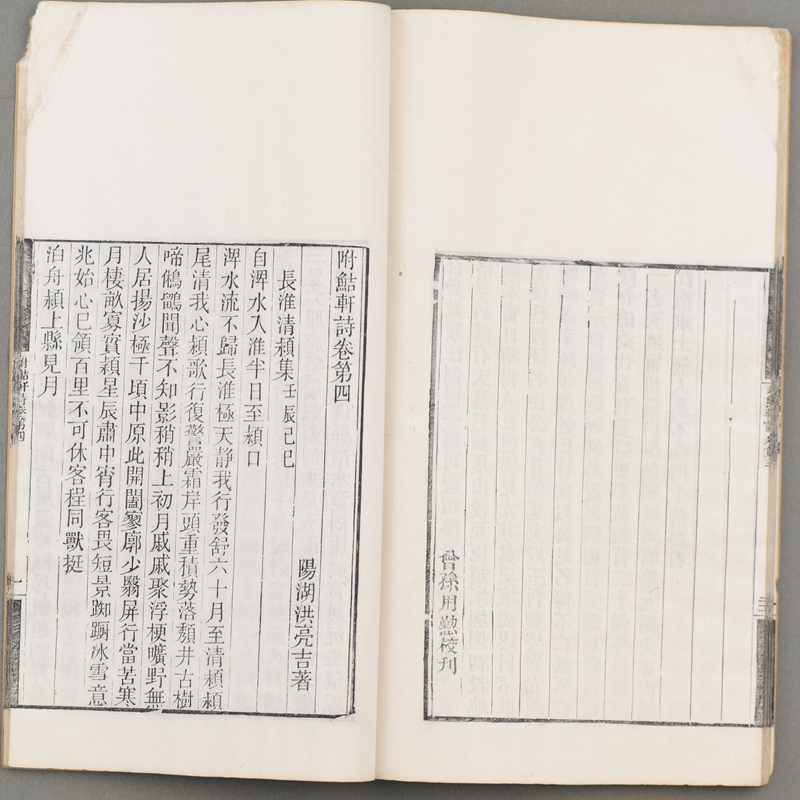 曾孫用懃校刊
附鮚軒詩卷第四
陽湖洪亮吉著
長淮清潁集壬辰己巳
自渒水入淮半日至潁口
渒水流不歸長淮極天静我行發舒六十月至清潁潁
尾清我心潁歌行復警嚴霜岸頭重積勢落頹井古樹
啼鵂鶹聞聲不知影稍稍上初月戚戚聚浮梗曠野無
人居揚沙極千頃中原此開闔寥廓少翳屏行當苦寒
月棲畝寡實穎星辰肅中宵行客畏短景踟蹰冰雪意
兆始心已領百里不可休客程同獸挺
泊舟潁上縣見月
附鮚軒詩卷第四
一